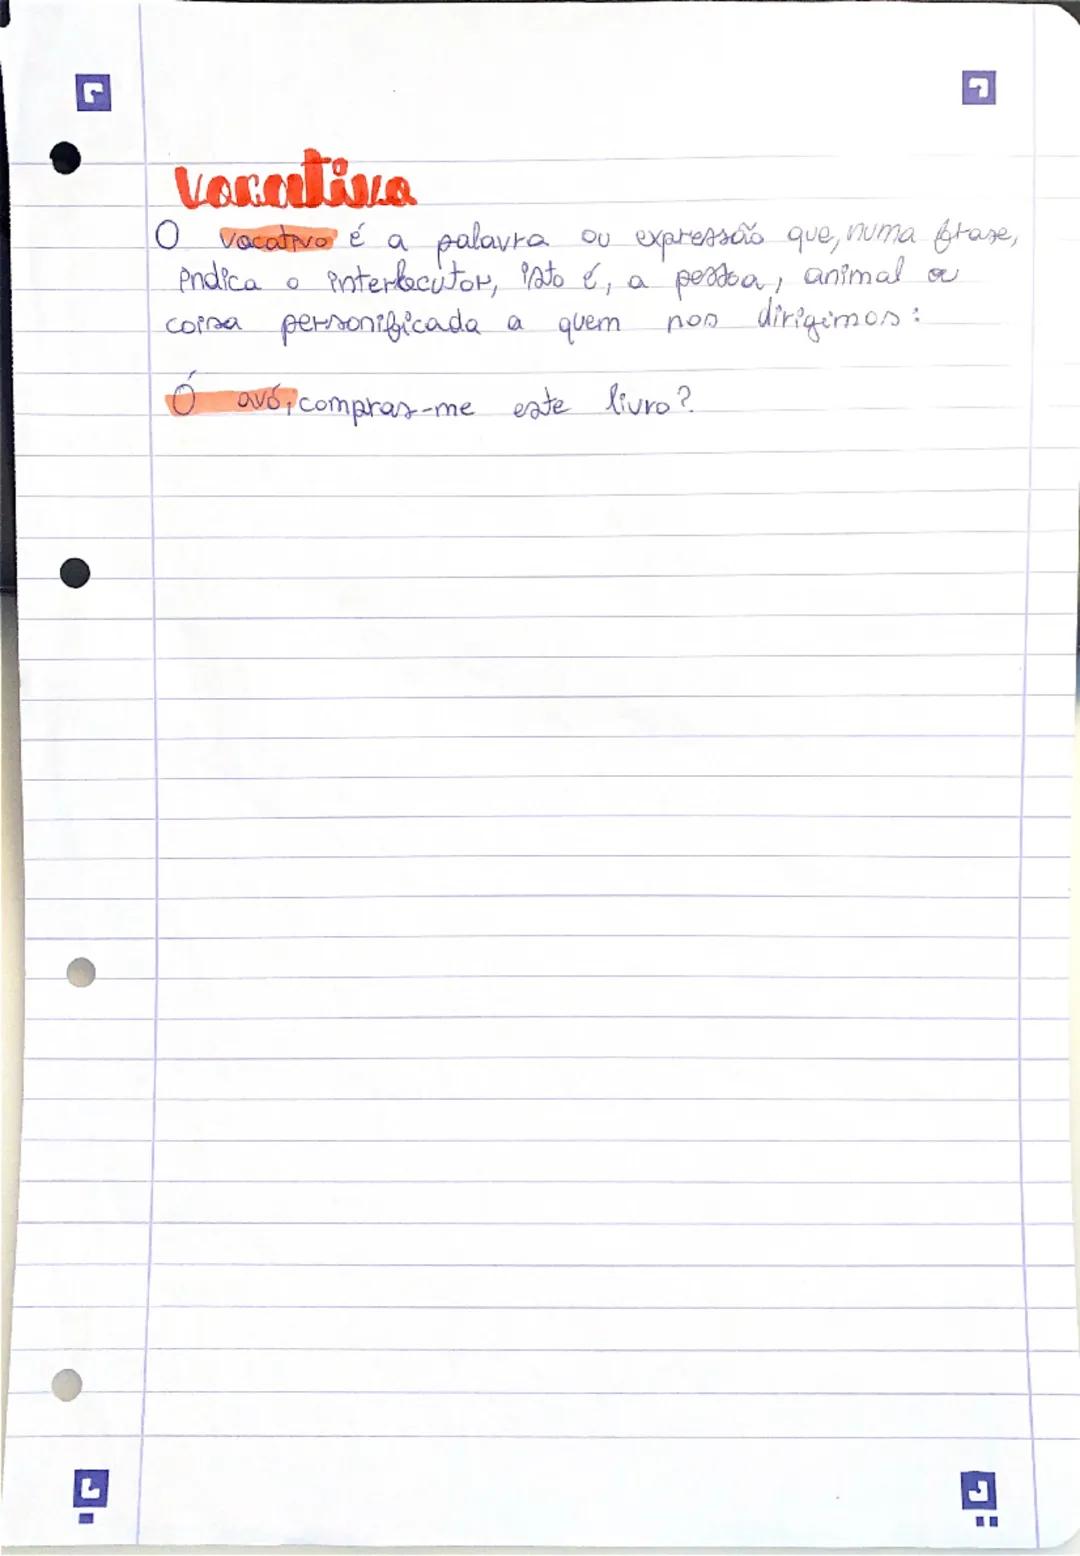 Vocativo
O vocativo é a palavra ou expressão que, numa frase,
indica o interlocutor, isto é, a pessoa, animal ou
coisa personificada a quem nos dirigimos:
Ó avó, compras-me este livro?